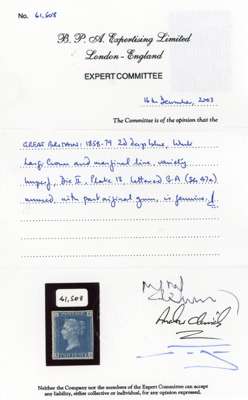 No. 41,508
B. P. A. Expertising Limited
London - England
EXPERT COMMITTEE
16th December, 2003
The Committee is of the opinion that the
GREAT BRITAIN: 1858-79 2d deep blue, Wmk
Large Crown and marginal line, variety
Imperf, Die II, Plate 13, lettered
unused, with part original gum, is genuine.
41,508
Neither the Company nor the members of the Expert Committee can accept
any liability, either collective or individual, for any opinion expressed.